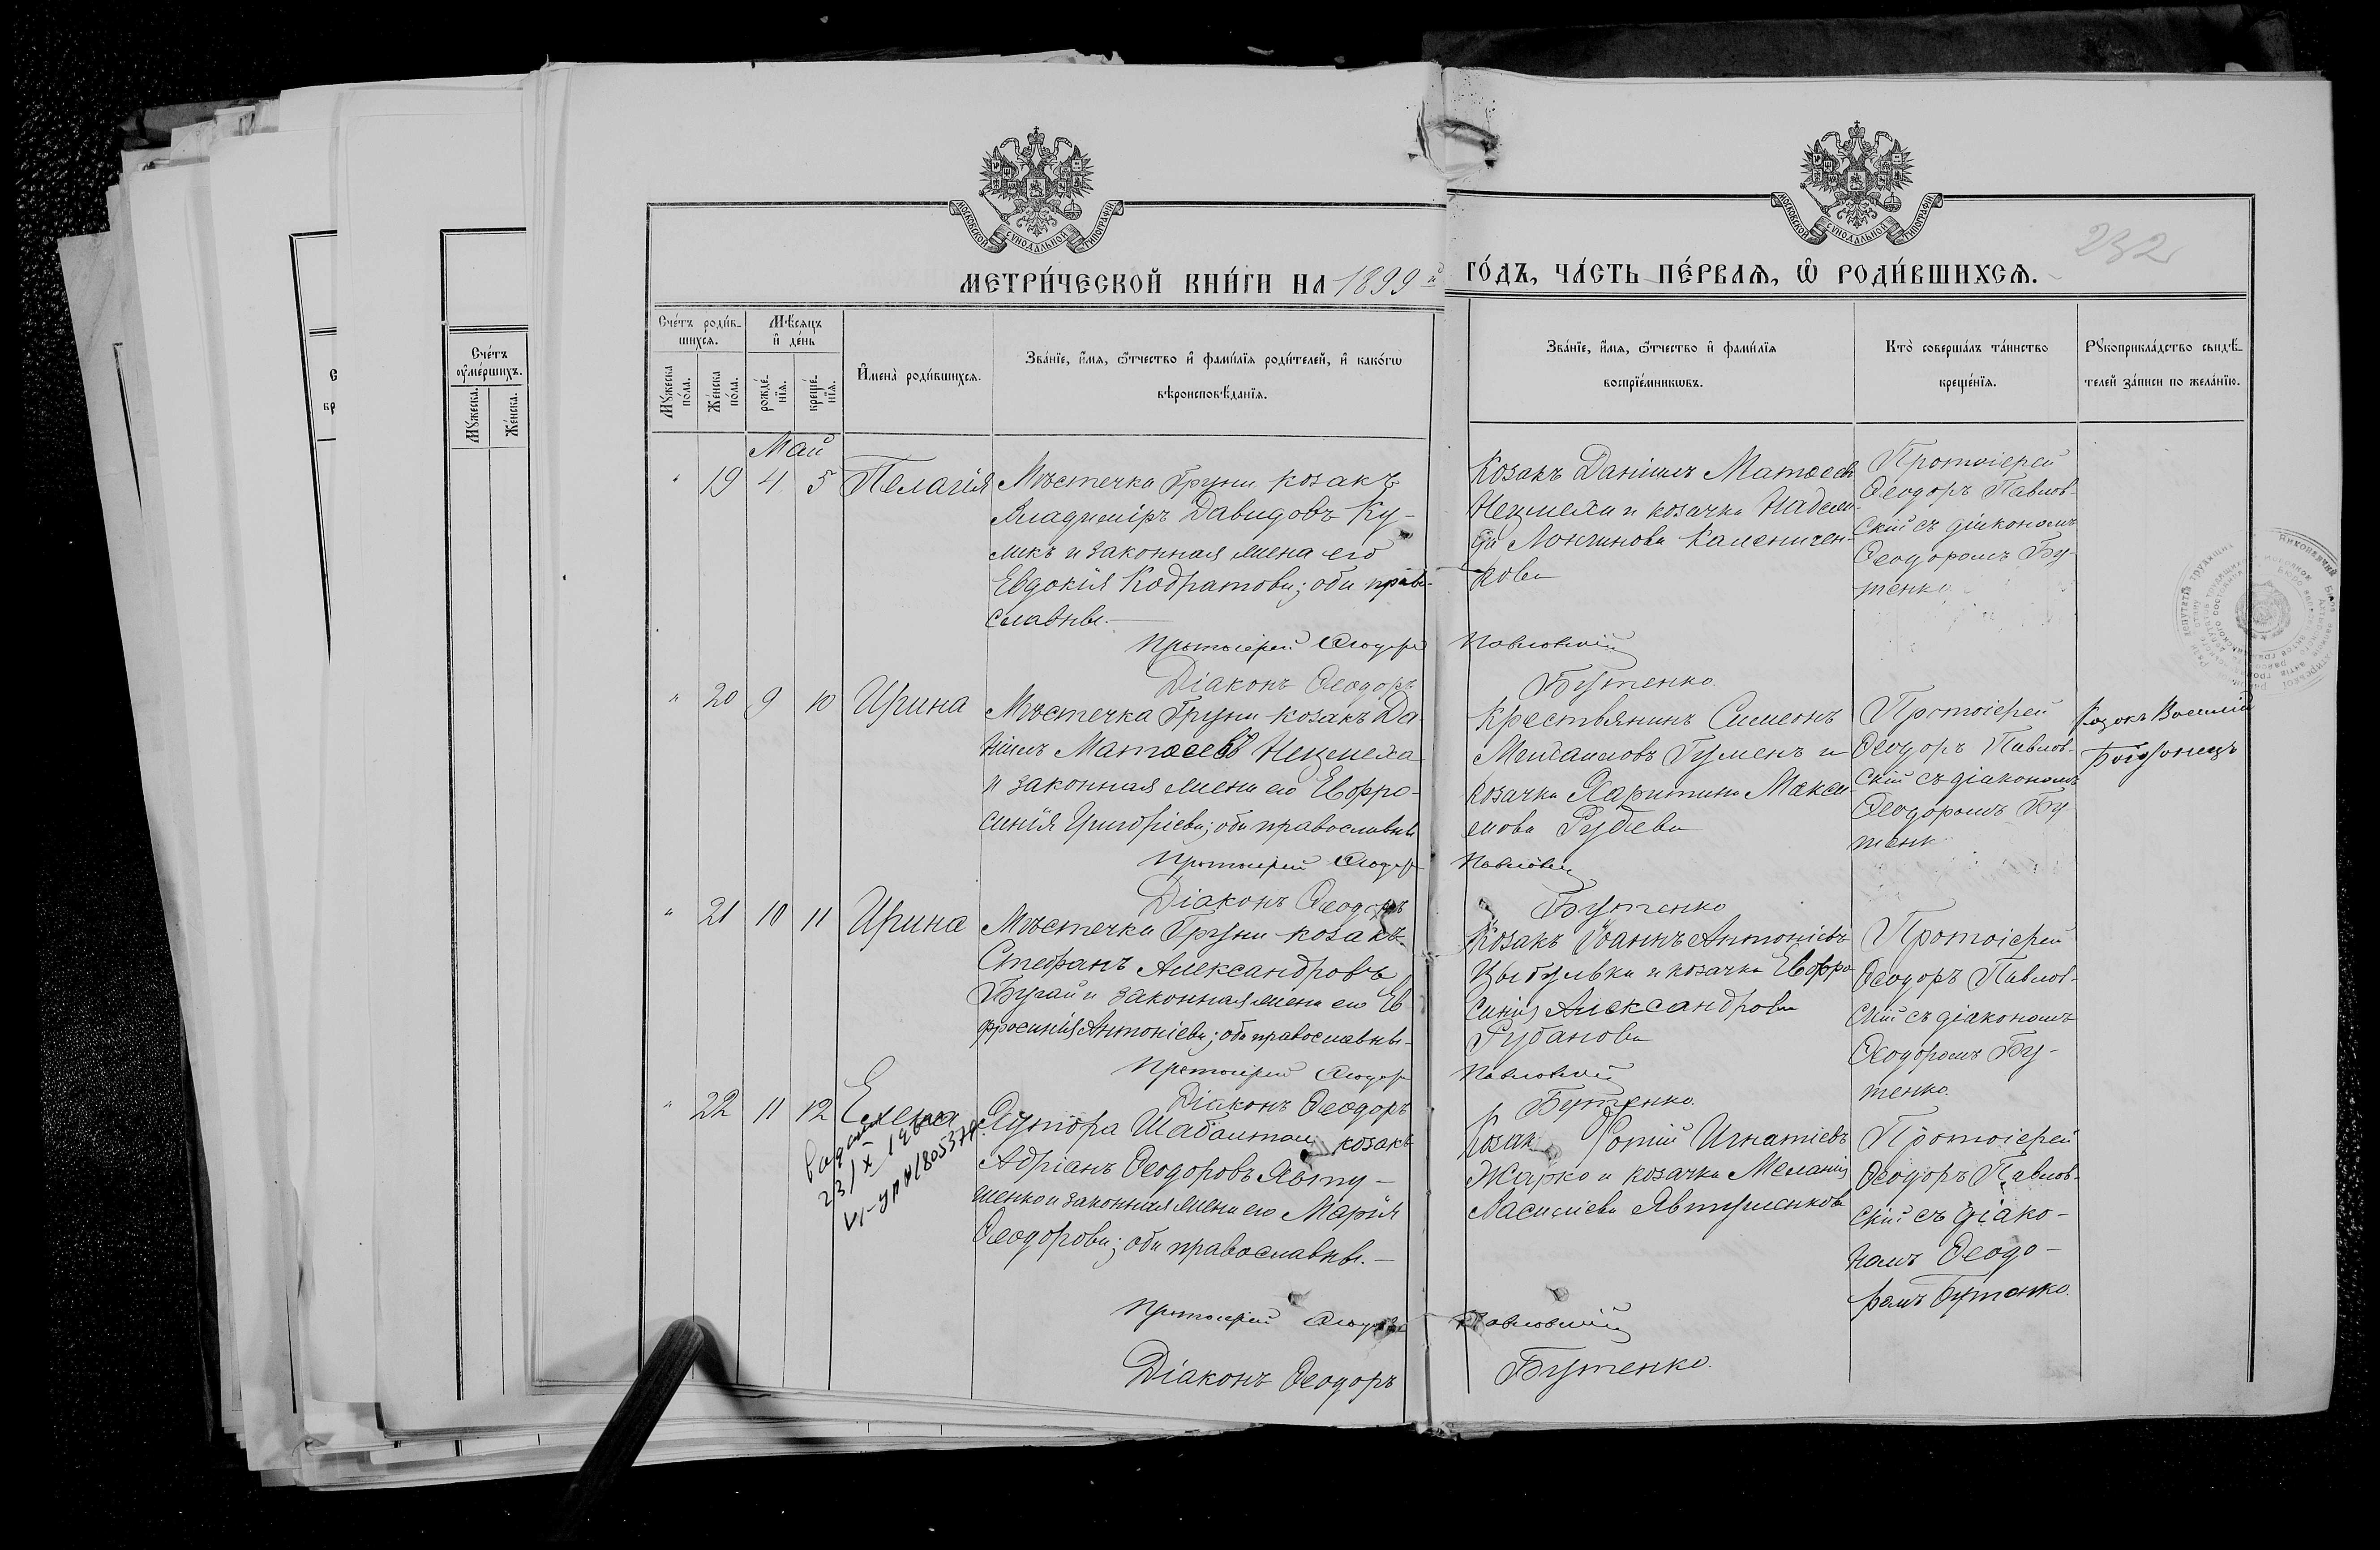 МЕТРИ́ЧЕСКОЙ КНИ́ГИ НА 1899 й
ГО́ДЪ, ЧА́СТЬ ПЕ́РВАѦ, Ѡ РОДИ́ВШИХСѦ.
232
Сче́тъ роди́в-
шихсѧ.
Мѣ́сяцъ
и҆ де́нь
Мꙋ́жеска
по́ла.
Же́нска
по́ла.
рожде́-
нїѧ.
креще́-
нїѧ.
И҆мена̀ роди́вшихсѧ.
Зва́нїе, и҆́мѧ, ѻ҆́тчество и҆ фами́лїѧ роди́телей, и҆ како́гѡ
вѣроисповѣ́данїѧ.
Зва́нїе, и҆́мѧ, ѻ҆́тчество и҆ фами́лїѧ
воспрїе́мникѡвъ.
Кто̀ соверша́лъ та́инство
креще́нїѧ.
Рꙋкоприкла́дство свидѣ́-
телей за́писи по жела́нїю.
Сче́тъ
ᲂу҆ме́ршихъ.
Мꙋ́жеска.
Же́нска.
Май
19 4 5 Пелагія
Мѣстечка Груни козакъ
Владиміръ Давидовъ Ку-
ликъ и законная жена его
Евдокія Кодратова; оба право-
славны.
Козакъ Даніилъ Матѳеевъ
Нецмеха и козачка Надеж-
да Лонгинова Каменичен-
кова
Протоіерей
Ѳеодоръ Павлов-
скій съ діакономъ
Ѳеодоромъ Бу-
тенко.
Протоіерей Ѳеодоръ Павловскій
Діаконъ Ѳеодоръ Бутенко.
20 9 10 Ирина
Мѣстечка Груни козакъ Да-
ніилъ Матѳеевъ Нецмеха
и законная жена его Евфро-
синія Григоріева; оба православны
Крестьянинъ Симеонъ
Михаиловъ Гуменъ и
козачка Харитина Макси-
мова Рубева
Протоіерей
Ѳеодоръ Павлов-
скій съ діакономъ
Ѳеодоромъ Бу-
тенк
Козакъ Василій
Протоіерей Ѳеодоръ Павловскій
Діаконъ Ѳеодоръ Бутенко
21 10 11 Ирина
Мѣстечка Груни козакъ
Стефанъ Александровъ
Бугай и законная жена его Ев-
фросинія Антоніева; оба православны-
Козакъ Іоаннъ Антоніевъ
Цыбулька и козачка Евфро-
синія Александрова
Рубанова
Протоіерей
Ѳеодоръ Павлов-
скій съ діакономъ
Ѳеодоромъ Бу-
тенко.
Протоіерей Ѳеодоръ Павловскій
Діаконъ Ѳеодоръ Бутенко.
22 11 12 Елена
Хутора Шабалтаи козакъ
Адріанъ Ѳеодоровъ Явту-
шенко и законная жена его Марія
Ѳеодорова; оба православны.-
Козак Фотій Игнатіевъ
Жарко и козачка Меланія
Василіева Явтушенкова
Протоіерей
Ѳеодоръ Павлов-
скій съ діако-
номъ Ѳеодо-
ромъ Бутенко.
Протоіерей Ѳеодоръ Павловскій
Діаконъ Ѳеодоръ Бутенко.